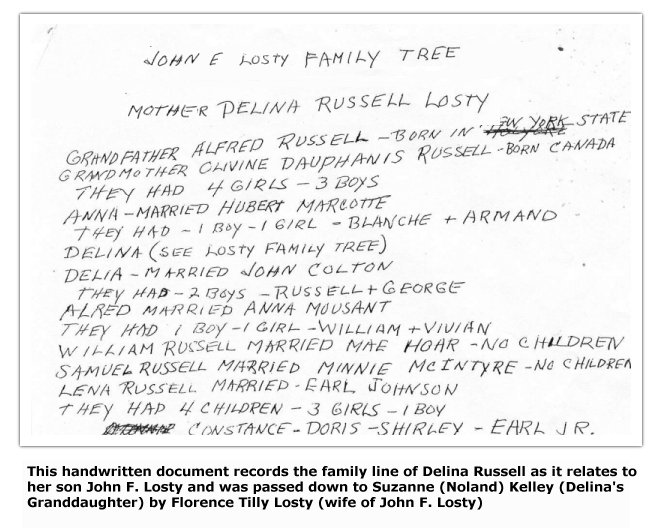 JOHN F LOSTY FAMILY TREE
MOTHER DELINA RUSSELL LOSTY
GRANDFATHER ALFRED RUSSELL - BORN IN YORK STATE
GRANDMOTHER OLIVINE DAUPHANIS RUSSELL - BORN CANADA
THEY HAD 4 GIRLS - 3 BOYS
ANNA - MARRIED HUBERT MARCOTTE
THEY HAD - 1 BOY - 1 GIRL - BLANCHE + ARMAND
DELINA (SEE LOSTY FAMILY TREE)
DELIA - MARRIED JOHN COLTON
THEY HAD - 2 BOYS - RUSSELL + GEORGE
ALRED MARRIED ANNA MOUSANT
THEY HAD 1 BOY - 1 GIRL - WILLIAM + VIVIAN
WILLIAM RUSSELL MARRIED MAE HOAR - NO CHILDREN
SAMUEL RUSSELL MARRIED MINNIE McINTYRE - NO CHILDREN
LENA RUSSELL MARRIED - EARL JOHNSON
THEY HAD 4 CHILDREN - 3 GIRLS - 1 BOY
CONSTANCE - DORIS - SHIRLEY - EARL JR.
This handwritten document records the family line of Delina Russell as it relates to
her son John F. Losty and was passed down to Suzanne (Noland) Kelley (Delina's
Granddaughter) by Florence Tilly Losty (wife of John F. Losty)